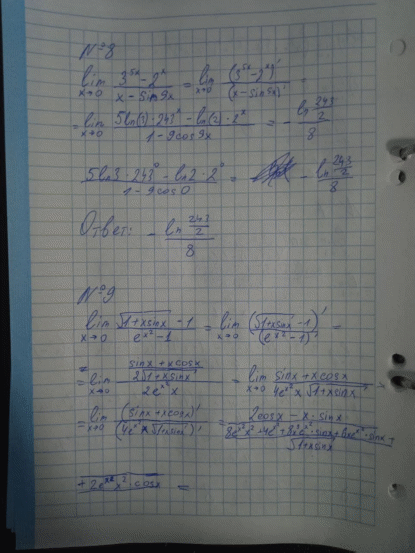 №8
lim x→0 (3^5x − 2^x)/(x − sin9x) = lim x→0 (3^5x − 2^x)'/(x − sin9x)' =
= lim x→0 (5ln(3)·243^x − ln(2)·2^x)/(1 − 9cos9x) = − (ln 243/2)/8
(5ln3·243^0 − ln2·2^0)/(1 − 9cos0) = − (ln 243/2)/8
Ответ: − (ln 243/2)/8
№9
lim x→0 (√(1+xsinx) − 1)/(e^x² − 1) = lim x→0 (√(1+xsinx) − 1)'/(e^x² − 1)' =
= lim x→0 ((sinx + xcosx)/(2√(1+xsinx)))/(2e^x² x) = lim x→0 (sinx + xcosx)/(4e^x² x √(1+xsinx)) =
= lim x→0 (sinx + xcosx)'/(4e^x² x √(1+xsinx))' = (2cosx − x·sinx)/
+ 2e^x² x²·cosx =